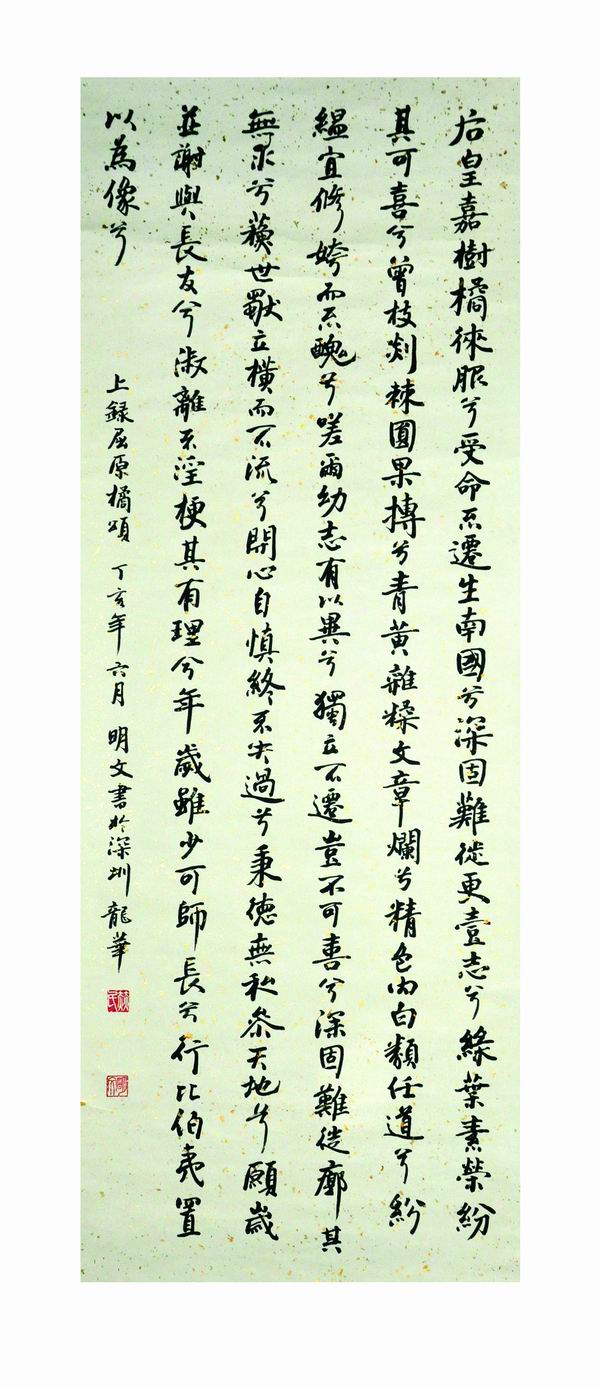 后皇嘉樹橘徠服兮受命不遷生南國兮深固難徙更壹志兮綠葉素榮紛
其可喜兮曾枝剡棘圓果摶兮青黃雜糅文章爛兮精色內白類任道兮紛
緼宜修姱而不醜兮嗟爾幼志有以異兮獨立不遷豈不可喜兮深固難徙廓其
無求兮蘇世獨立橫而不流兮閉心自慎終不失過兮秉德無私參天地兮願歲
並謝與長友兮淑離不淫梗其有理兮年歲雖少可師長兮行比伯夷置
以為像兮
上錄屈原橘頌 丁亥年六月 明文書於深圳龍華